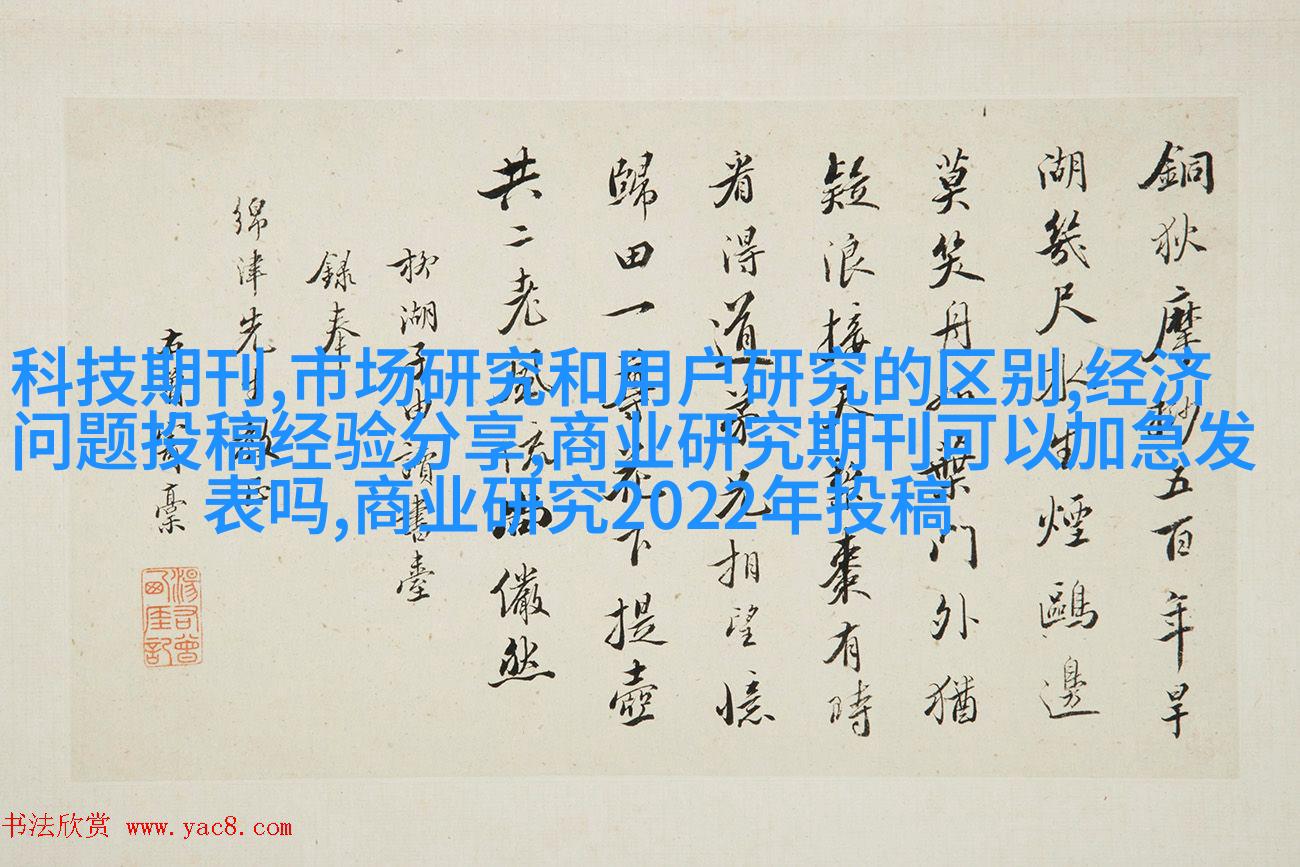 銅狄摩挲五百年旱
湖幾尺水生煙鷗邊
莫笑丹如葉門外猶
疑浪接天梨棗有時
看得道弟兄相望憶
歸田一尊花下提壺
共二老風流尚儼然
柳湖子由讀書臺
錄奉
綿津先生
稾
科技期刊,市场研究和用户研究的区别,经济
问题投稿经验分享,商业研究期刊可以加急发
表吗,商业研究2022年投稿
书法欣赏 www.yac8.com